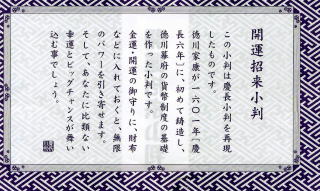 開運招来小判
この小判は慶長小判を再現
したものです。
徳川家康が一六〇一年（慶
長六年）に、初めて鋳造し、
徳川幕府の貨幣制度の基礎
を作った小判です。
金運・開運の御守りに、財布
などに入れておくと、無限
のパワーを引き寄せます。
そして、あなたに比類ない
幸運とビッグチャンスが舞い
込む事でしょう。